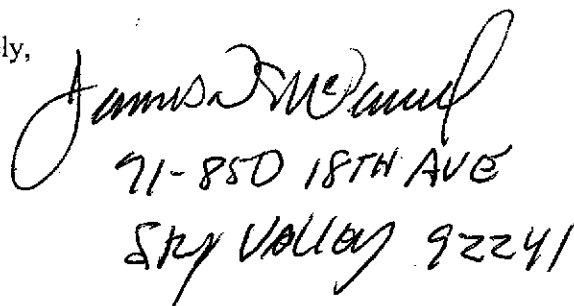 ely,
James D McDaniel
91-850 18TH AVE
Sky Valley 92241